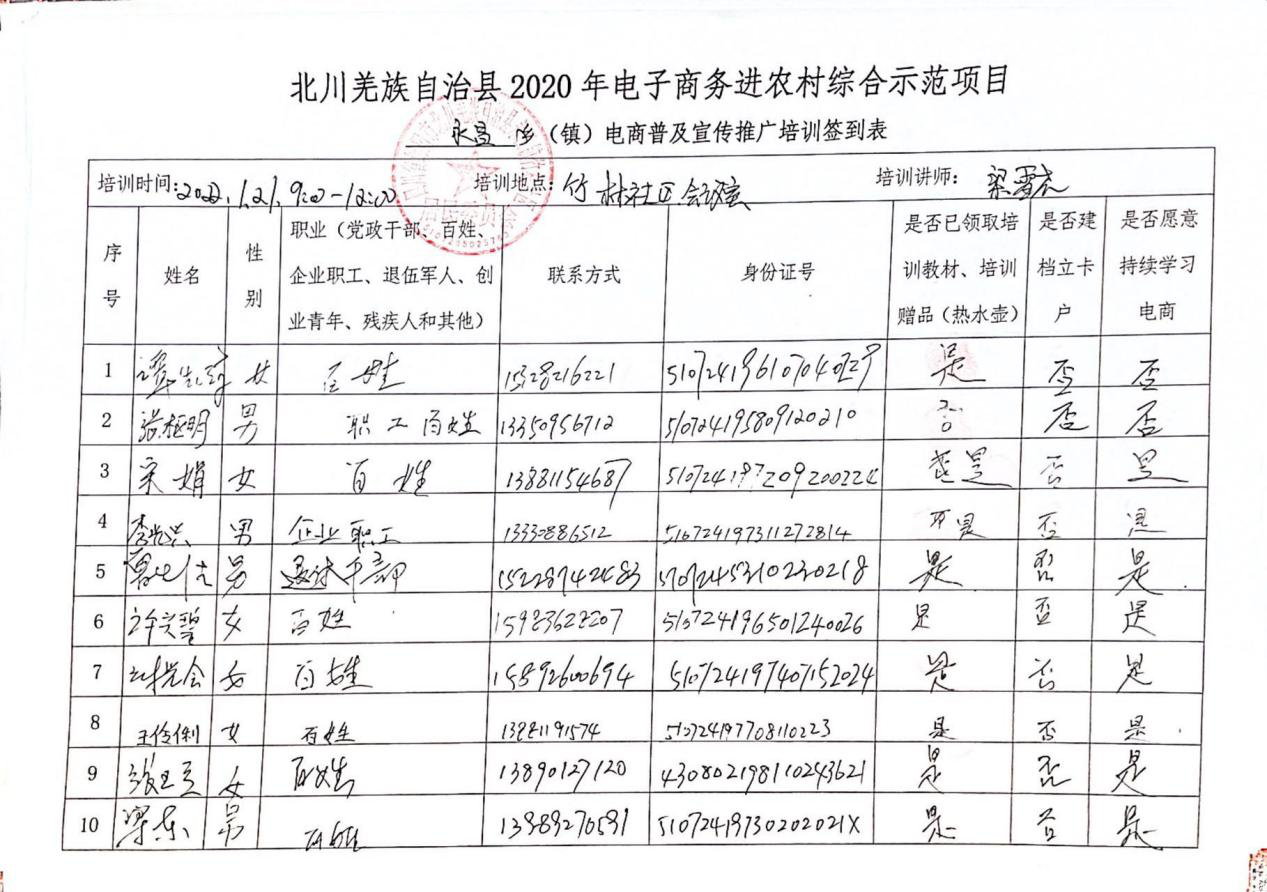 北川羌族自治县 2020 年电子商务进农村综合示范项目
永昌 乡（镇）电商普及宣传推广培训签到表
培训时间:2022.1.21. 9:00-12:00 培训地点:竹林社区会议室 培训讲师:
序号 姓名 性别 职业（党政干部、百姓、企业职工、退伍军人、创业青年、残疾人和其他） 联系方式 身份证号 是否已领取培训教材、培训赠品（热水壶） 是否建档立卡户 是否愿意持续学习电商
1 女 百姓 是 否 否
2 男 职工百姓 13350956712 510724195809120210 否 否 否
3 宋娟 女 百姓 13881154687 是 否 是
4 男 企业职工 13330886512 510724197311272814 是 否 是
5 男 退休干部 是 否 是
6 女 百姓 510724196501240026 是 否 是
7 女 百姓 15892600694 510724197407152024 是 否 是
8 王伶俐 女 百姓 13881191574 510724197708110223 是 否 是
9 女 百姓 13890127120 430802198110243621 是 否 是
10 梁东 男 百姓 51072419730202021X 是 否 是